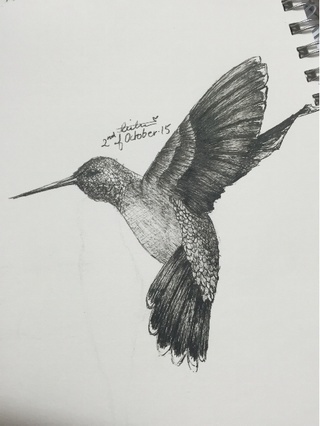 2nd of October-15